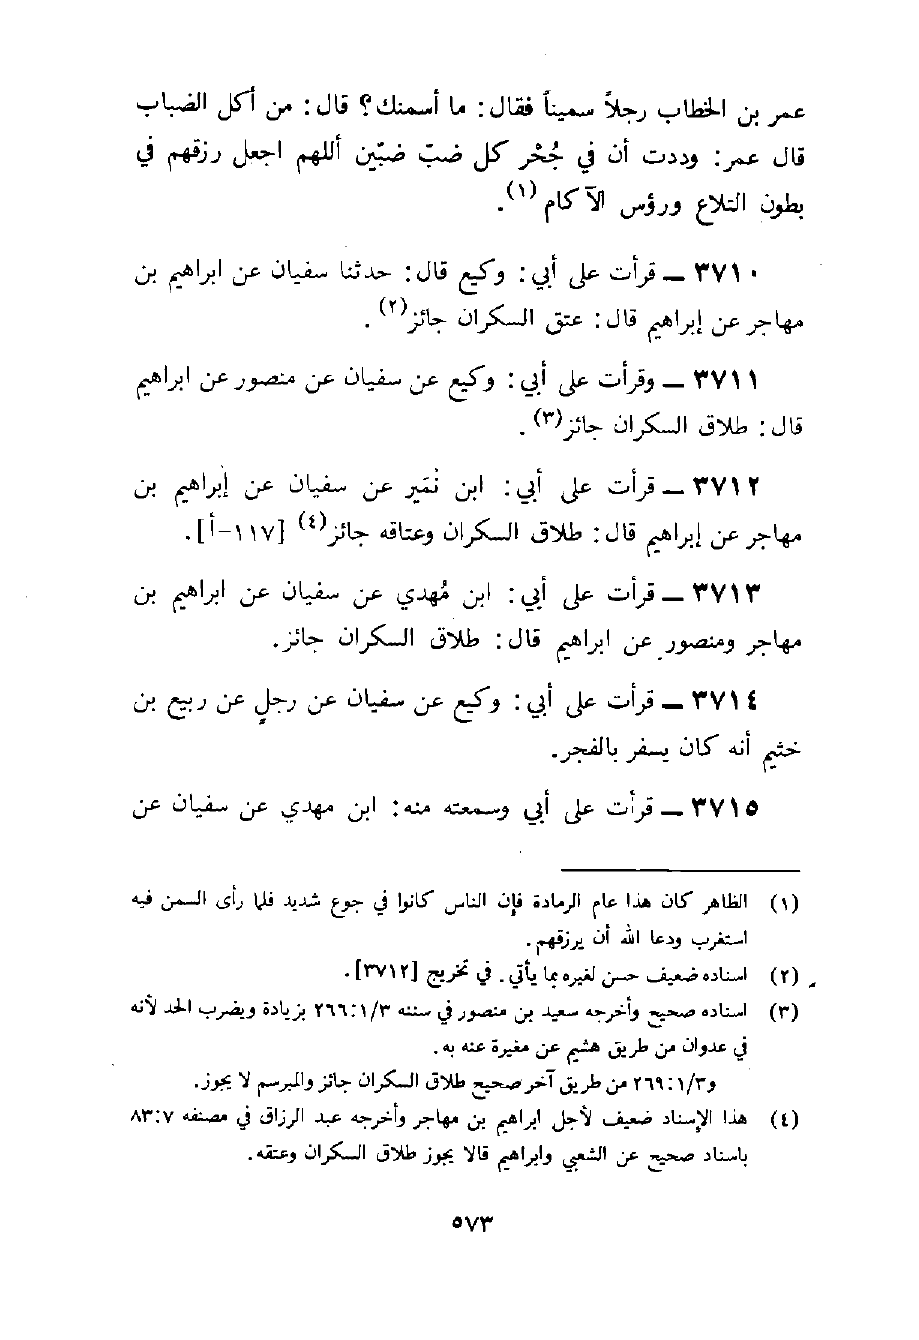 عمر بن الخطاب رجلاً سميناً فقال: ما أسمنك؟ قال: من أكل الضباب
قال عمر: وددت أن في جُحْر كل ضبّ ضبّين أللهم اجعل رزقهم في
بطون التلاع ورؤس الآكام (١).
٣٧١٠ ــ قرأت على أبي: وكيع قال: حدثنا سفيان عن ابراهيم بن
مهاجر عن إبراهيم قال: عتق السكران جائز(٢).
٣٧١١ ــ وقرأت على أبي: وكيع عن سفيان عن منصور عن ابراهيم
قال: طلاق السكران جائز(٣).
٣٧١٢ ــ قرأت على أبي: ابن نُمَير عن سفيان عن إبراهيم بن
مهاجر عن إبراهيم قال: طلاق السكران وعتاقه جائز(٤) [١١٧-أ].
٣٧١٣ ــ قرأت على أبي: ابن مُهدي عن سفيان عن ابراهيم بن
مهاجر ومنصور عن ابراهيم قال: طلاق السكران جائز.
٣٧١٤ ــ قرأت على أبي: وكيع عن سفيان عن رجلٍ عن ربيع بن
خثيم أنه كان يسفر بالفجر.
٣٧١٥ ــ قرأت على أبي وسمعته منه: ابن مهدي عن سفيان عن
(١) الظاهر كان هذا عام الرمادة فإن الناس كانوا في جوع شديد فلما رأى السمن فيه
استغرب ودعا الله أن يرزقهم.
(٢) اسناده ضعيف حسن لغيره بما يأتي. في تخريج [٣٧١٢].
(٣) اسناده صحيح وأخرجه سعيد بن منصور في سننه ٢٦٦:١/٣ بزيادة ويضرب الحد لأنه
في عدوان من طريق هشيم عن مغيرة عنه به.
و٢٦٩:١/٣ من طريق آخر صحيح طلاق السكران جائز والمبرسم لا يجوز.
(٤) هذا الإسناد ضعيف لأجل ابراهيم بن مهاجر وأخرجه عبد الرزاق في مصنفه ٨٣:٧
باسناد صحيح عن الشعبي وابراهيم قالا يجوز طلاق السكران وعتقه.
٥٧٣